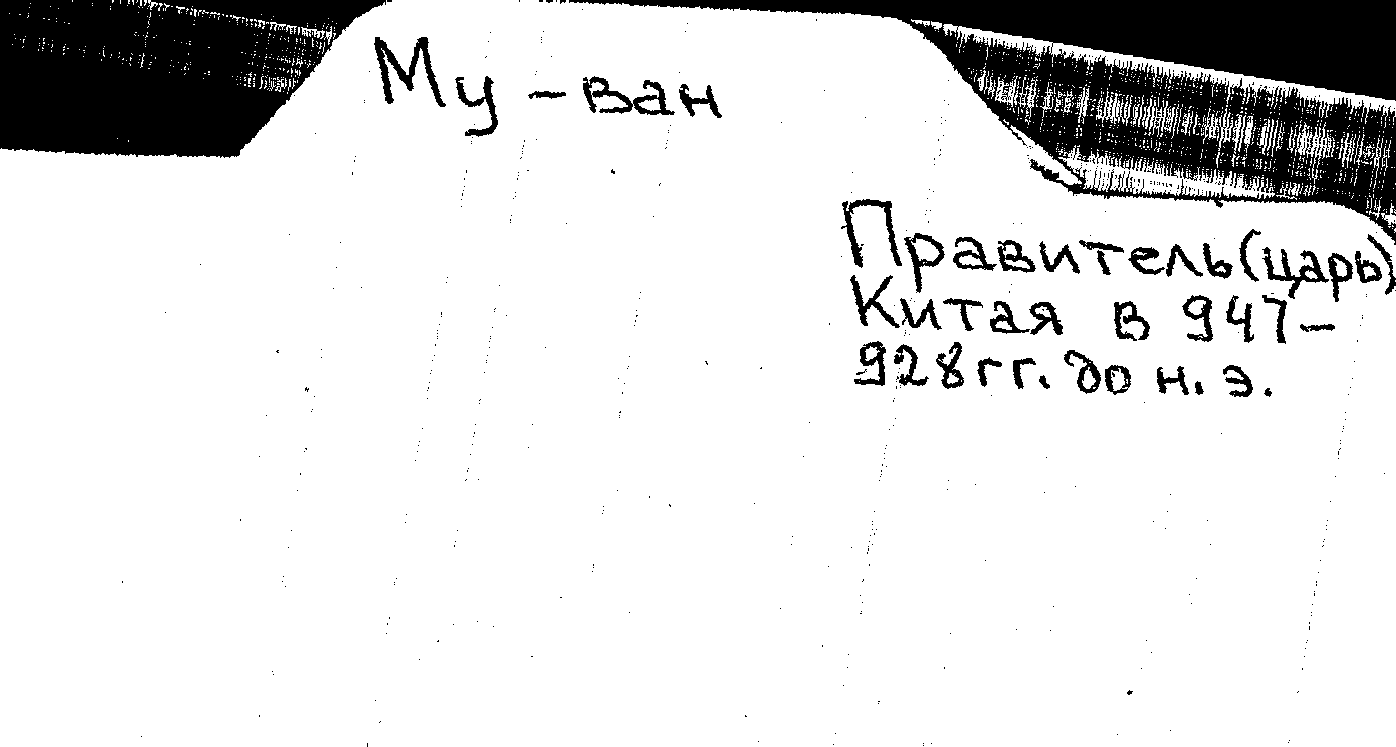 Му-ван
Правитель(царь)
Китая в 947-
928гг. до н.э.